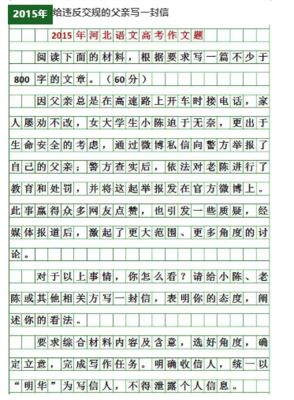 2015年 给违反交规的父亲写一封信
2015年河北语文高考作文题
阅读下面的材料，根据要求写一篇不少于
800字的文章。（60分）
因父亲总是在高速路上开车时接电话，家
人屡劝不改，女大学生小陈迫于无奈，更出于
生命安全的考虑，通过微博私信向警方举报了
自己的父亲；警方查实后，依法对老陈进行了
教育和处罚，并将这起举报发在官方微博上。
此事赢得众多网友点赞，也引发一些质疑，经
媒体报道后，激起了更大范围、更多角度的讨
论。
对于以上事情，你怎么看？请给小陈、老
陈或其他相关方写一封信，表明你的态度，阐
述你的看法。
要求综合材料内容及含意，选好角度，确
定立意，完成写作任务。明确收信人，统一以
“明华”为写信人，不得泄露个人信息。